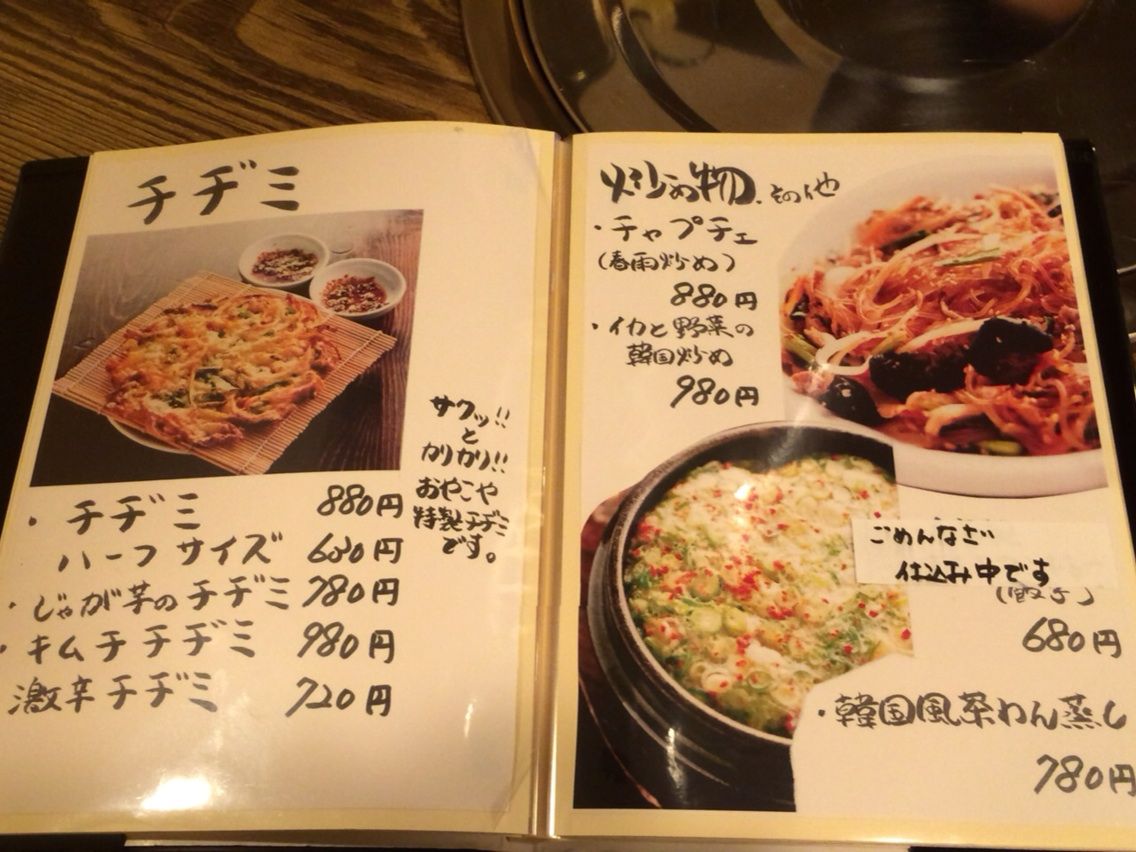 チヂミ
サクッ!!
と
カリカリ!!
おやこや
特製チヂミ
です。
・チヂミ 880円
ハーフサイズ 600円
・じゃが芋のチヂミ 780円
・キムチチヂミ 980円
激辛チヂミ 720円
炒め物、その他
・チャプチェ
(春雨炒め)
880円
・イカと野菜の
韓国炒め
980円
ごめんなさい
仕込み中です
680円
・韓国風茶わん蒸し
780円